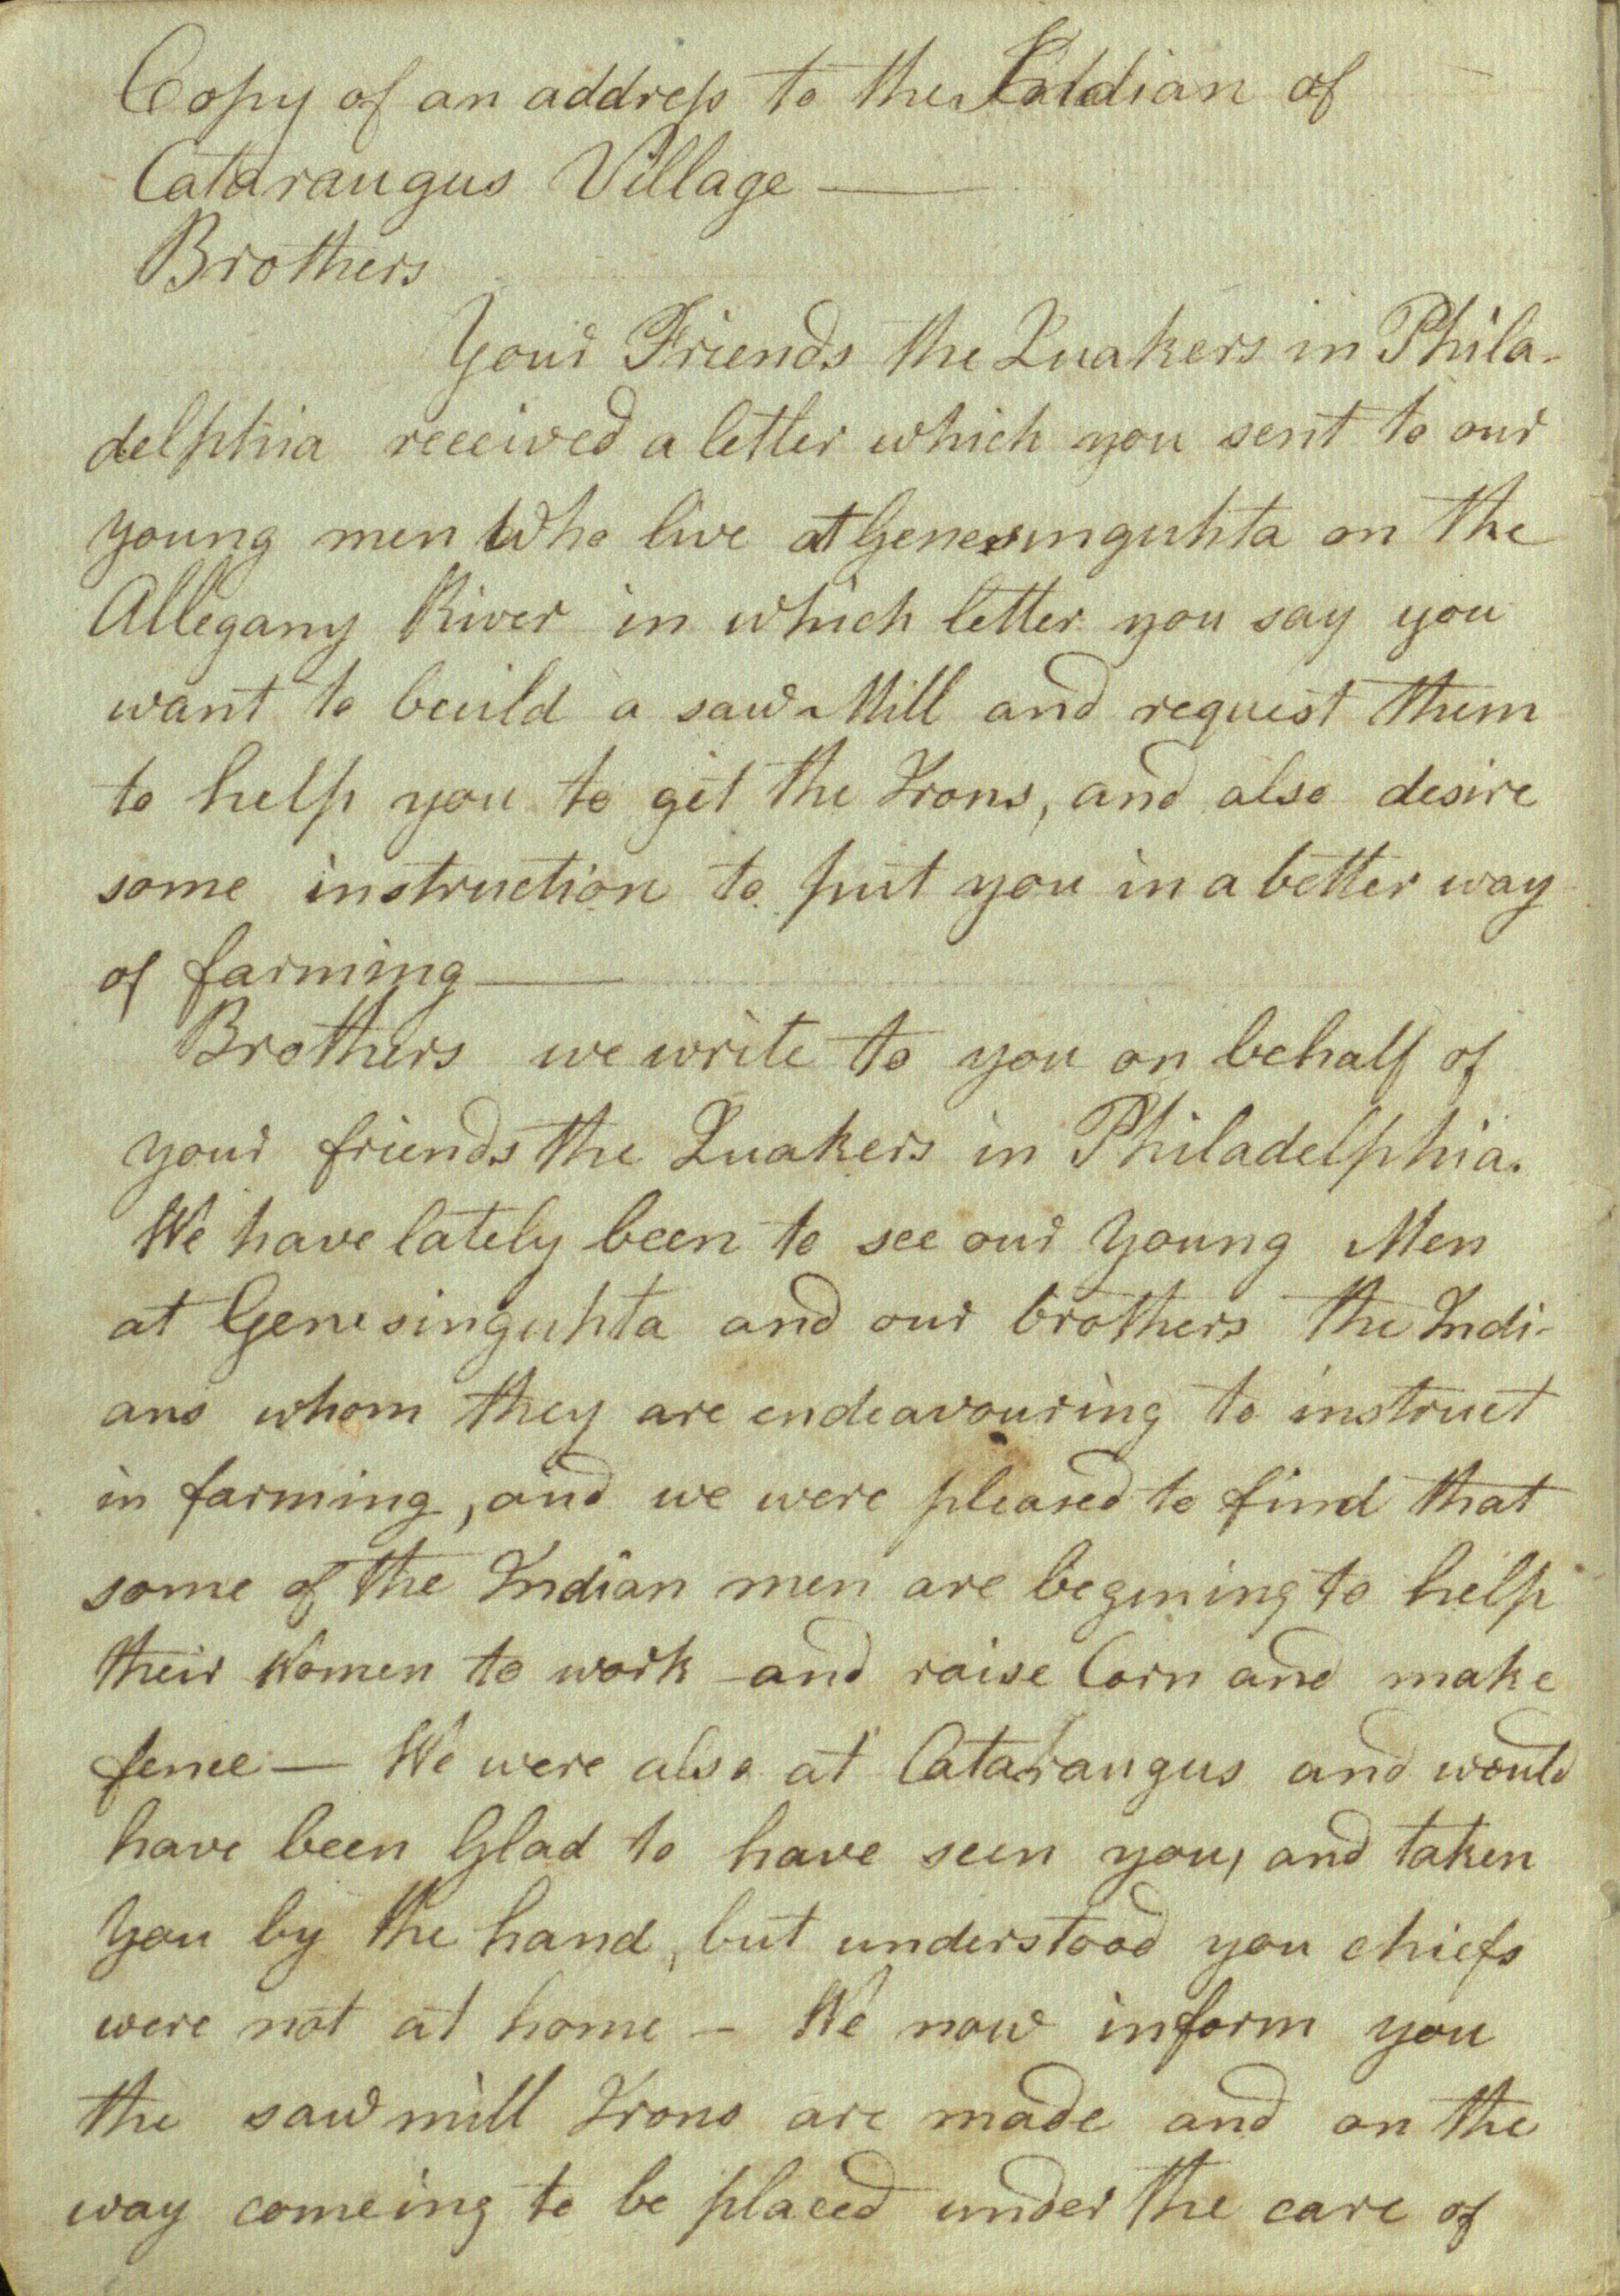 Copy of an address to the Indian of
Cataraugus Village —
Brothers
Your Friends the Quakers in Phila-
delphia received a letter which you sent to our
young men Who live at Genesinguhta on the
Allegany River in which letter you say you
want to build a saw Mill and request them
to help you to get the Irons, and also desire
some instruction to put you in a better way
of farming —
Brothers we write to you on behalf of
your friends the Quakers in Philadelphia.
We have lately been to see our Young Men
at Genesinguhta and our brothers the Indi-
ans whom they are endeavouring to instruct
in farming, and we were pleased to find that
some of the Indian men are begining to help
their Women to work and raise Corn and make
fence — We were also at Cataraugus and would
have been Glad to have seen you, and taken
You by the hand, but understood you chiefs
were not at home - We now inform you
the saw mill Irons are made and on the
way comeing to be placed under the care of